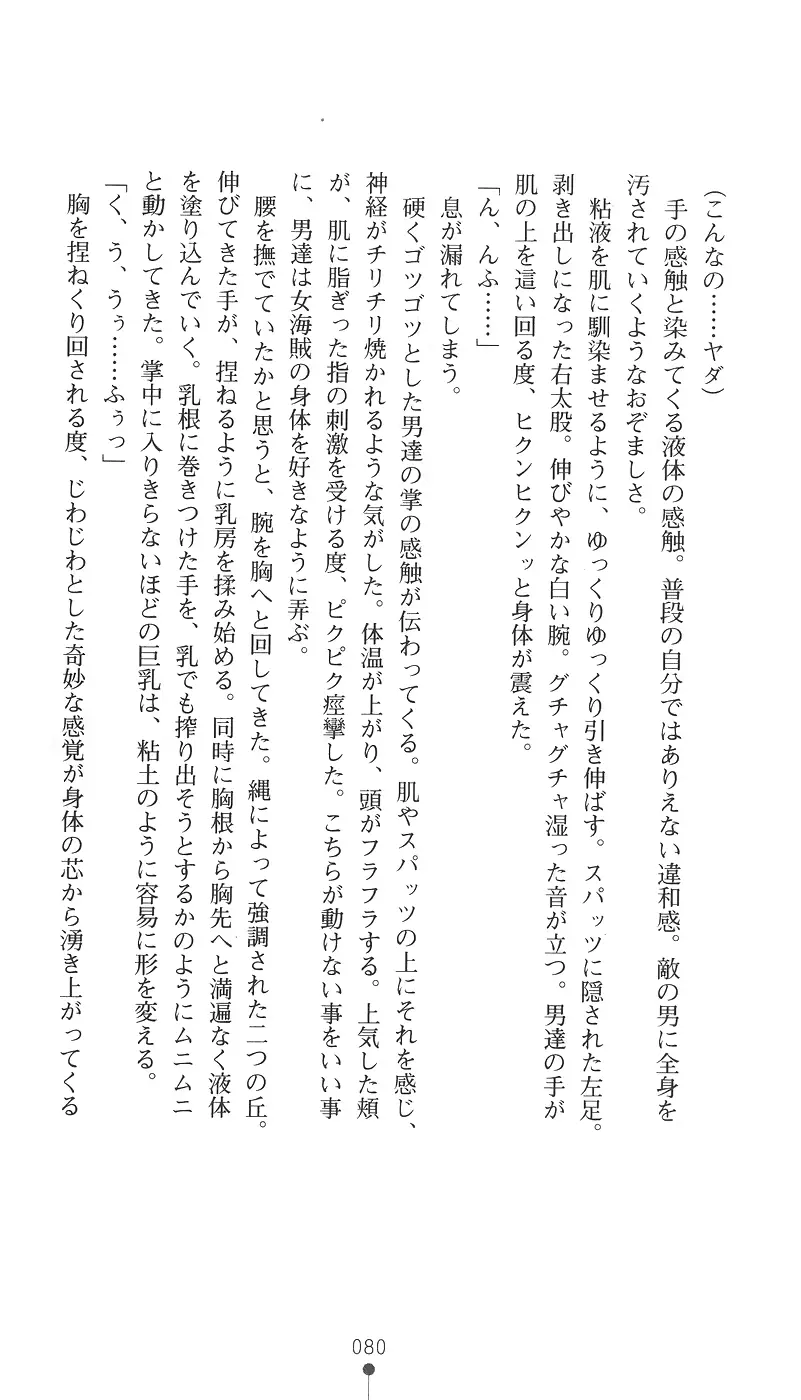 （こんなの……ヤダ）
手の感触と染みてくる液体の感触。普段の自分ではありえない違和感。敵の男に全身を
汚されていくようなおぞましさ。
粘液を肌に馴染ませるように、ゆっくりゆっくり引き伸ばす。スパッツに隠された左足。
剥き出しになった右太股。伸びやかな白い腕。グチャグチャ湿った音が立つ。男達の手が
肌の上を這い回る度、ヒクンヒクンッと身体が震えた。
「ん、んふ……」
息が漏れてしまう。
硬くゴツゴツとした男達の掌の感触が伝わってくる。肌やスパッツの上にそれを感じ、
神経がチリチリ焼かれるような気がした。体温が上がり、頭がフラフラする。上気した頬
が、肌に脂ぎった指の刺激を受ける度、ピクピク痙攣した。こちらが動けない事をいい事
に、男達は女海賊の身体を好きなように弄ぶ。
腰を撫でていたかと思うと、腕を胸へと回してきた。縄によって強調された二つの丘。
伸びてきた手が、捏ねるように乳房を揉み始める。同時に胸根から胸先へと満遍なく液体
を塗り込んでいく。乳根に巻きつけた手を、乳でも搾り出そうとするかのようにムニムニ
と動かしてきた。掌中に入りきらないほどの巨乳は、粘土のように容易に形を変える。
「く、う、うぅ……ふぅっ」
胸を捏ねくり回される度、じわじわとした奇妙な感覚が身体の芯から湧き上がってくる
080